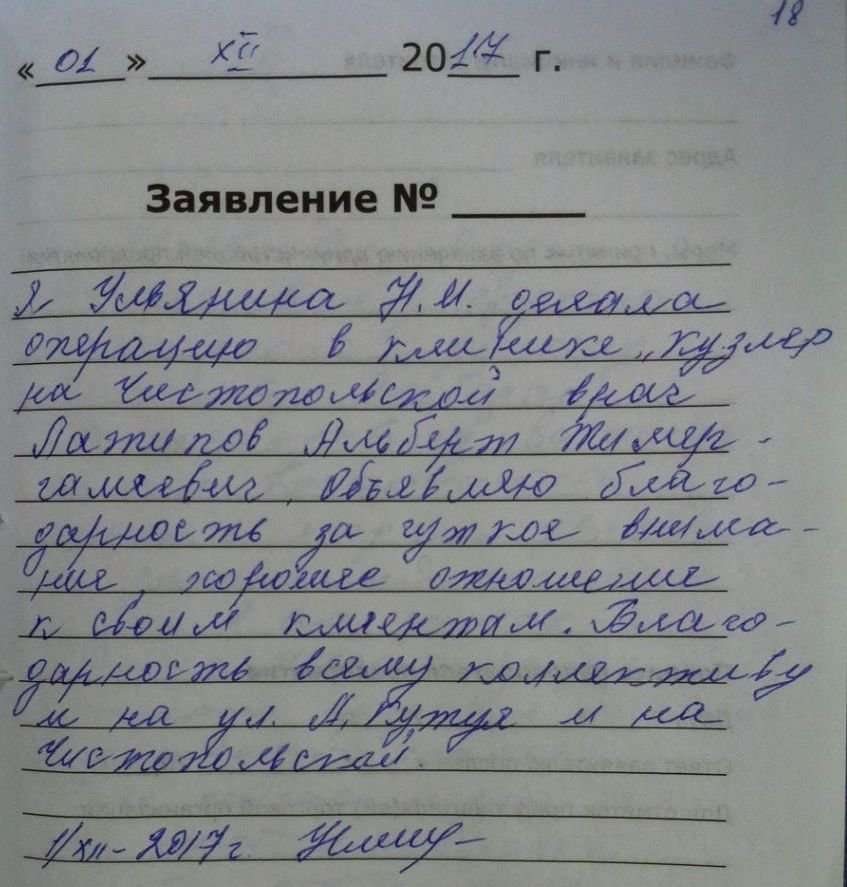 18
« 01 » XII 2017 г.
Заявление № ______
Я Ульянина Н.И. делала
операцию в клинике „Кузляр
на Чистопольской врач
Латипов Альберт Тимер-
галиевич, Объявляю благо-
дарность за чуткое внима-
ние, хорошее отношение
к своим клиентам. Благо-
дарность всему коллективу
и на ул. А. Кутуя и на
Чистопольской.
1/XII-2017г.